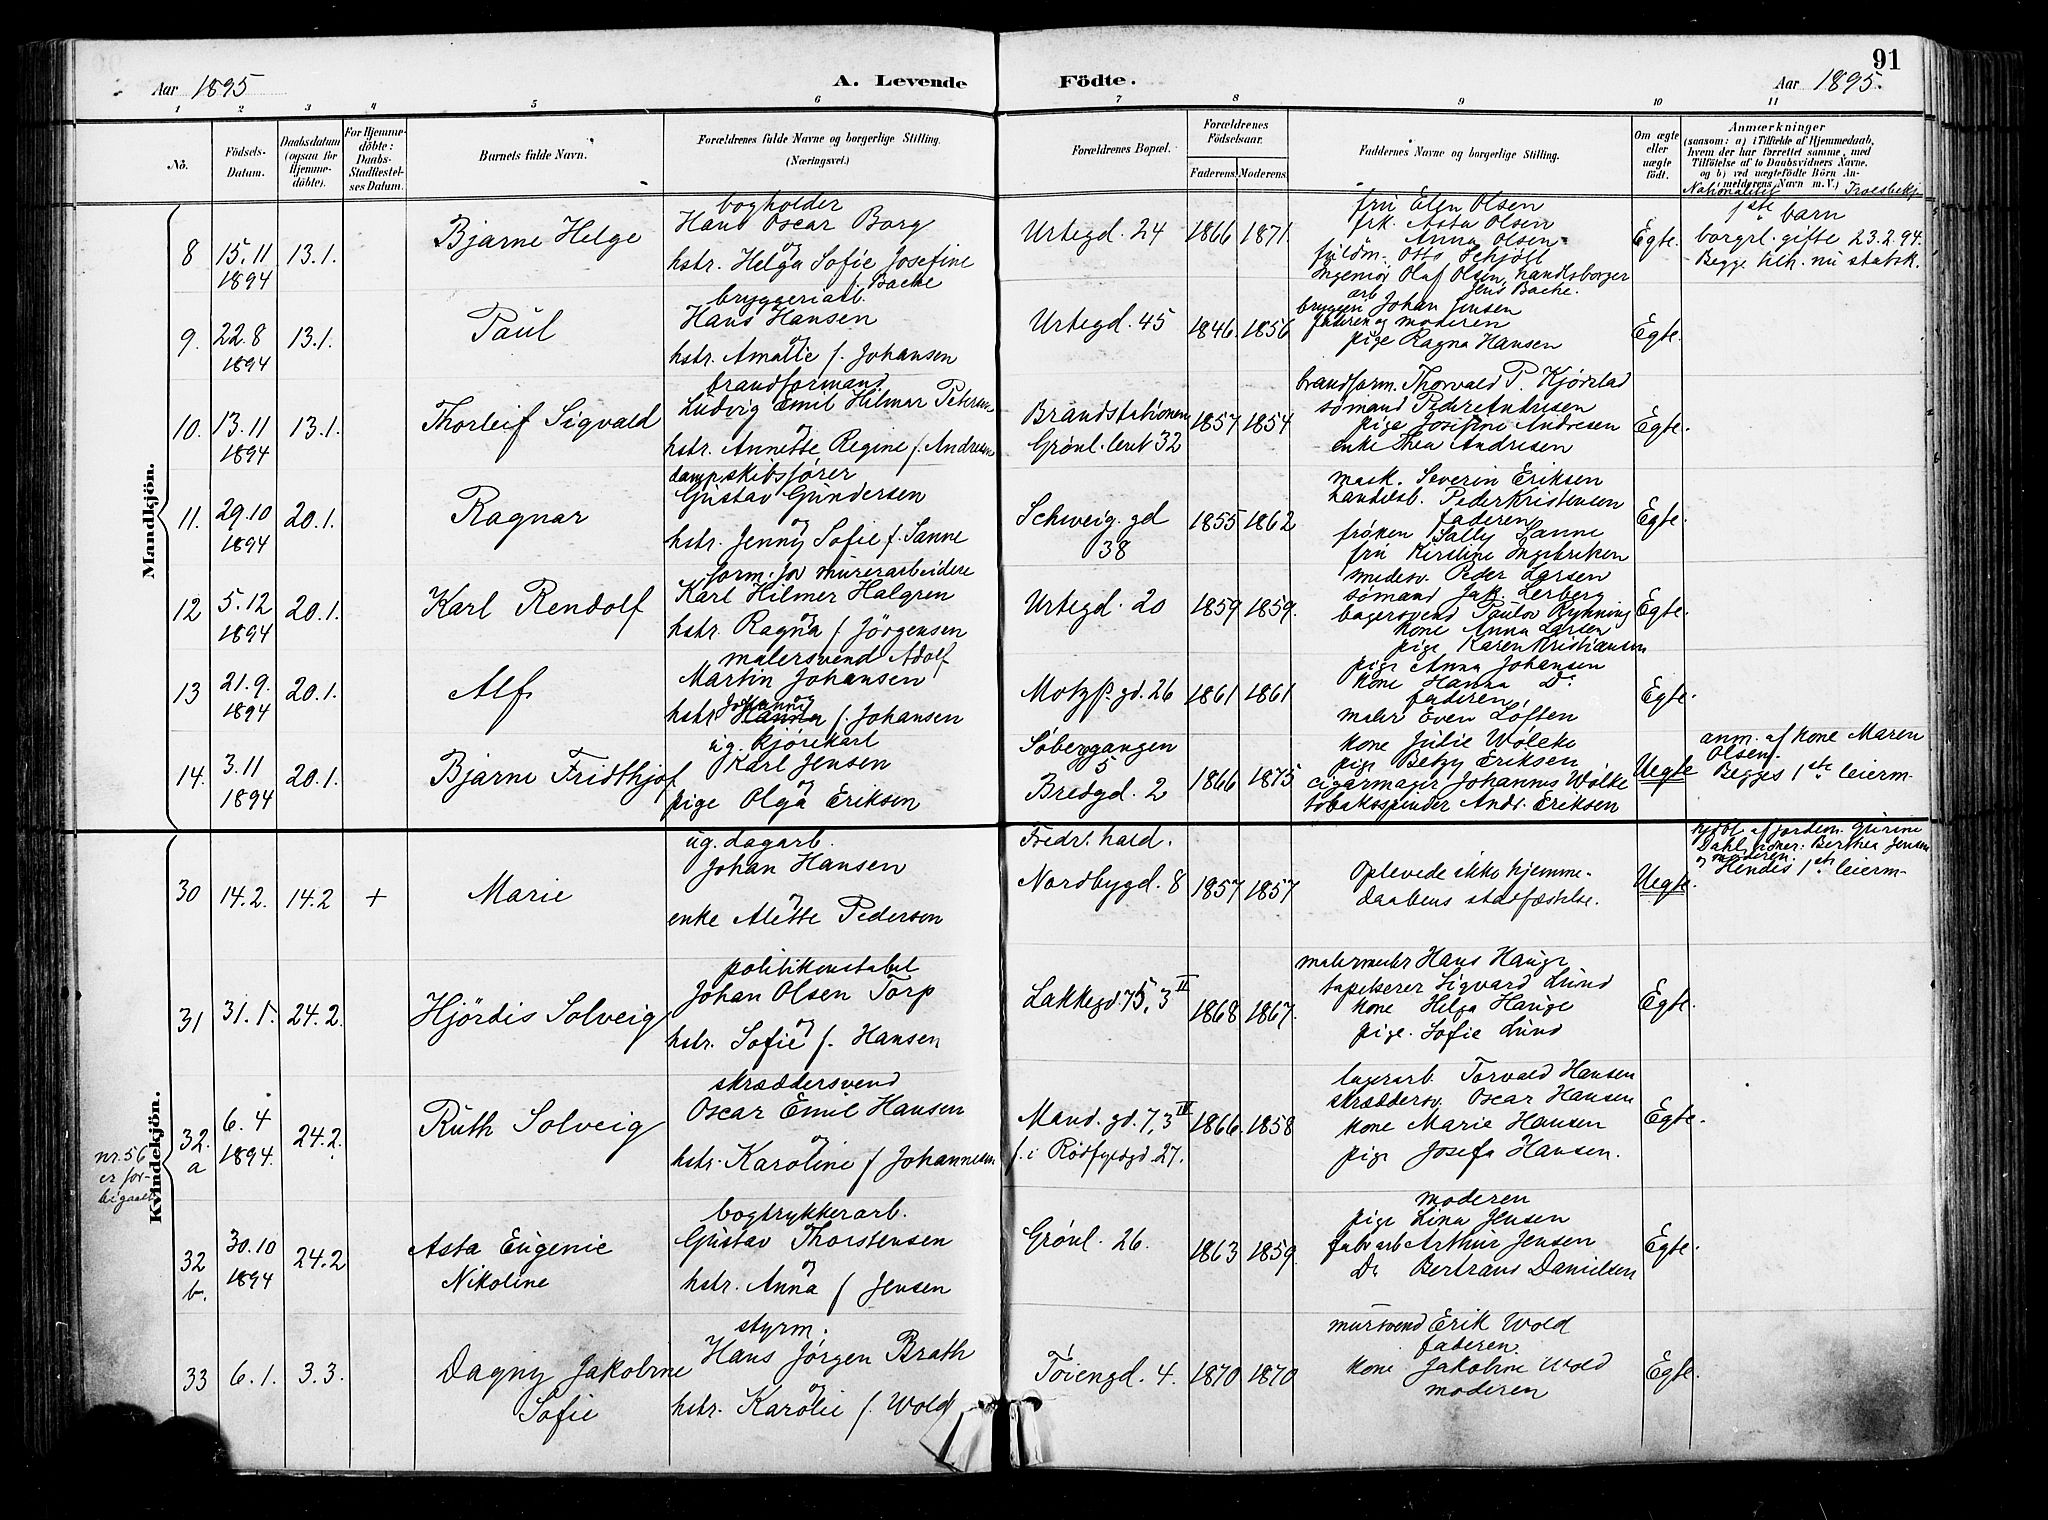 91
Aar 1895
A. Levende Födte.
Aar 1895.
1 2 3 4 5 6 7 8 9 10 11
No.
Födsels-Datum.
Daabsdatum (ogsaa for Hjemmedöbte).
For Hjemmedöbte: Daabs-Stadfæstelses Datum.
Barnets fulde Navn.
Forældrenes fulde Navne og borgerlige Stilling. (Næringsvei.)
Forældrenes Bopæl.
Forældrenes Födselsaar.
Faderens. Moderens.
Faddernes Navne og borgerlige Stilling.
Om ægte eller uægte födt.
Anmærkninger
(saasom: a) i Tilfælde af Hjemmedaab, hvem der har forrettet samme, med Tilföielse af to Daabsvidners Navne, og b) ved uægtefödte Börn Anmelderens Navn m. V.)
Nationalitet Troesbekj.
Mandkjön.
8 15.11 1894 13.1. Bjarne Helge
bogholder
Hans Oscar Borg
og
hstr. Helga Sofie Josefine
f. Bache
Urtegd. 24 1866 1871.
fru Elen Olsen
frk. Asta Olsen
Anna Olsen
fuldm. Otto Schjöll
Ingeniør Olaf Olsen, handlsborger
Jens Bache.
Egte.
1ste barn
borgrl. gifte 23.2.94.
Begge tilh. nu statsk.
9. 22.8 1894 13.1. Paul
bryggeriarb.
Hans Hansen
og
hstr. Amalie f. Johansen
Urtegd. 45 1846. 1856
bryggeriarb Johan Jensen
faderen og moderen
pige Ragna Hansen
Egte.
10. 13.11 1894 13.1. Thorleif Sigvald
brandformand
Ludvig Emil Hilmar Petersen
og
hstr. Annette Regine f. Andresen
Brandstationen
Grönl. leret 32
1857 1854
brandform. Thorvald P. Kjörstad
sömand Peder Andresen
pige Josefine Andresen
enke Thea Andresen
Egte.
11. 29.10 1894 20.1. Ragnar
dampskibsfører
Gustav Gundersen
og
hstr. Jenny Sofie f. Sanne
Schweig. gd
38
1855 1862
mask. Severin Eriksen
handelsb. Peder Kristensen
faderen
frøken Sally Sanne
fru Kirstine
Egte.
12 5.12 1894 20.1. Karl Rendolf
form. for murerarbeidere
Karl Hilmer Halgren
og
hstr. Ragna f. Jörgensen
Urtegd. 20 1859 1859.
Peder Larsen
sømand Jak. Lerberg
bagersvend Paulov Rynning
kone Anna Larsen
pige Karen Kristiansen
Egte.
13 21.9. 1894 20.1. Alf
malersvend Adolf
Martin Johansen
og
hstr. Johanne f. Johansen
Motzf. gd. 26 1861 1861
pige Anna Johansen
kone Hanna Do
faderen
maler Even Löften
Egte.
14. 3.11 1894 20.1. Bjarne Fridthjof
ug. kjörekarl
Karl Jensen
og
pige Olga Eriksen
Søberggangen
5
Bredgd. 2
1866 1875
kone Julie Wölcke
pige Betzy Eriksen
cigarmager Johannes Wölke
tobaksspinder Andr. Eriksen
Uegte
anm. af kone Maren
Olsen.
Begges 1ste leierm-
Kvindekjön.
30 14.2. 14.2 + Marie
ug. dagarb.
Johan Hansen
og
enke Alette Pedersen
Fredr. hald.
Nordbygd. 8 1857 1857
Oplevede ikke hjemme-
daabens stadfæstelse.
Uegte.
hjdbt. af jordem. Gurine
Dahl vidner: Berthea Jensen
og moderen.
Hendes 1ste leierm-
31 31.1. 24.2. Hjördis Solveig
politikonstabel
Johan Olsen Torp
og
hstr. Sofie f. Hansen
Lakkegd. 75, 3 II 1868 1867.
malermester Hans Hauge
tapetserer Sigvard Lund
kone Helga Hauge
pige. Sofie Lund
Egte.
32. a 6.4 1894. 24.2. Ruth Solveig
skræddersvend
Oscar Emil Hansen
og
hstr. Karoline f Johannesen
Mand. gd. 7, 3 IV
f. i Rödfyldgd. 27.
1866. 1858
lagerarb. Torvald Hansen
skrædders. Oscar Hansen
kone Marie Hansen
pige Josefa Hansen.
Egte.
nr. 56
er for-
bigaaet
32 b. 30.10 1894 24.2 Asta Eugenie
Nikoline
bogtrykkerarb.
Gustav Thorstensen
og
hstr. Anna f Jensen
Grönl. 26. 1863 1859.
moderen
pige Lina Jensen
fabrarb Arthur Jensen
Do Bertrans Danielsen
Egte.
33 6.1. 3.3. Dagny Jakobine
Sofie
styrm.
Hans Jörgen Brath
og
hstr. Karolie f. Wold
Töiengd. 4. 1870 1870
mursvend Erik Wold
faderen.
kone Jakobine Wold
moderen
Egte.